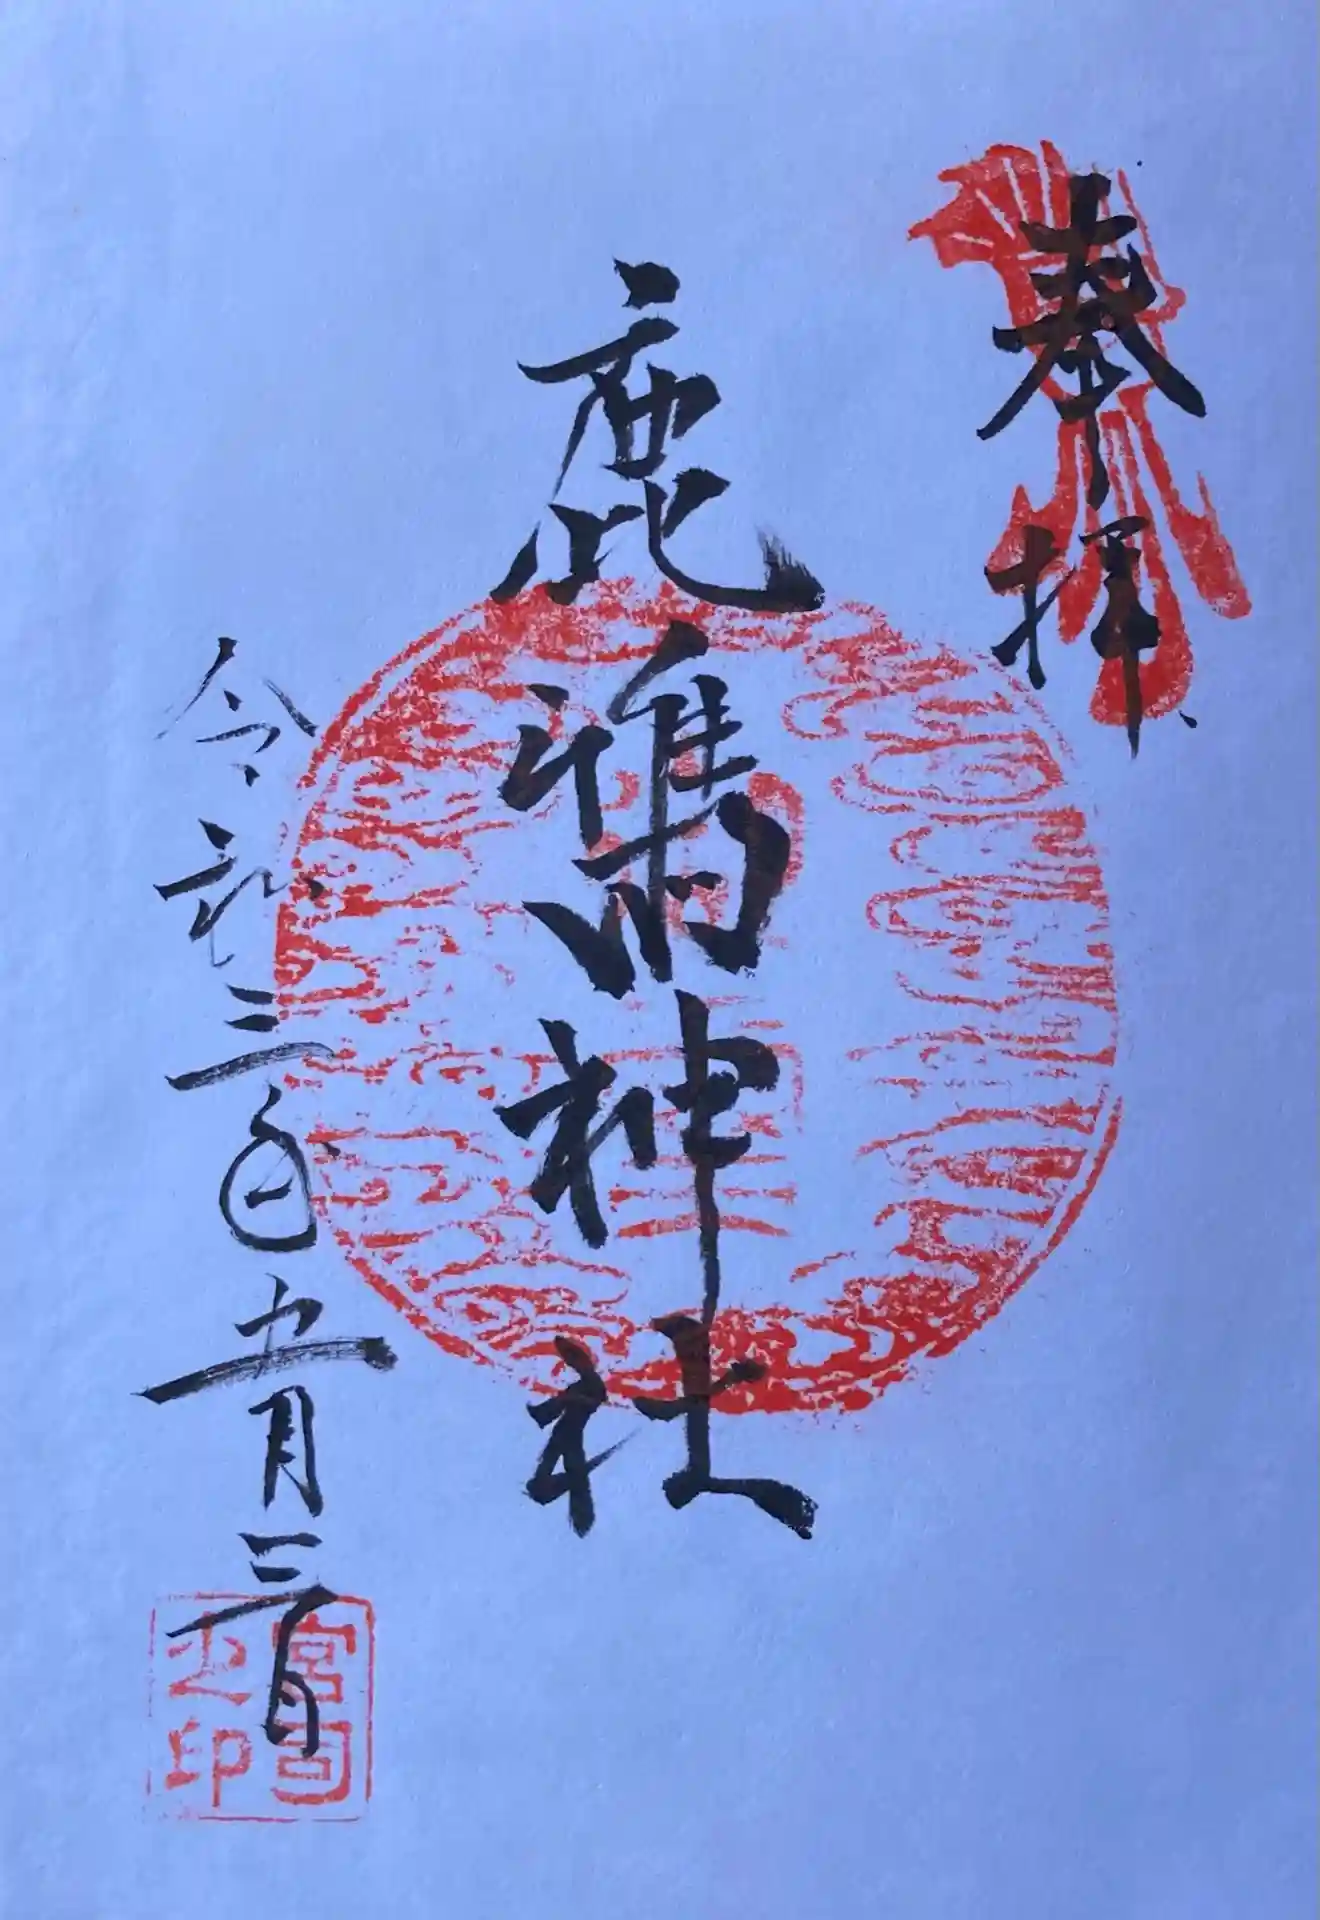 奉拝
鹿嶋神社
令和三年五月三日
宮司之印